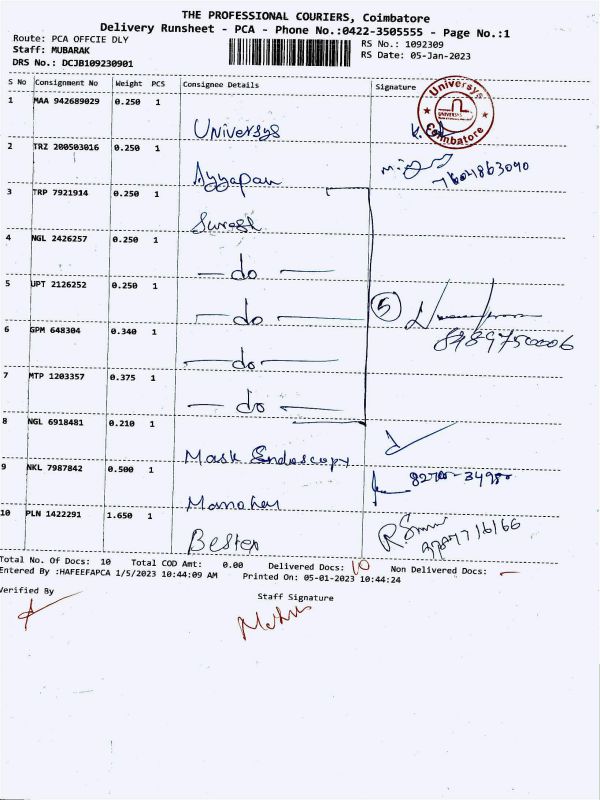 THE PROFESSIONAL COURIERS, Coimbatore
Delivery Runsheet - PCA - Phone No.:0422-3505555 - Page No.:1
Route: PCA OFFCIE DLY
RS No.: 1092309
Staff: MUBARAK
RS Date: 05-Jan-2023
DRS No.: DCJB109230901
S No Consignment No Weight PCS Consignee Details Signature
Universys
UNIVERSYS
Coimbatore
1 MAA 942689029 0.250 1
Universys
2 TRZ 200503016 0.250 1
Ayyapan
7604863090
3 TRP 7921914 0.250 1
Suresh
4 NGL 2426257 0.250 1
— do —
5 UPT 2126252 0.250 1
— do —
5
6 GPM 648304 0.340 1
— do —
7 MTP 1203357 0.375 1
— do —
8 NGL 6918481 0.210 1
Mask Endoscopy
9 NKL 7987842 0.500 1
10 PLN 1422291 1.650 1
Total No. Of Docs: 10 Total COD Amt: 0.00 Delivered Docs: 10 Non Delivered Docs: –
Entered By :HAFEEFAPCA 1/5/2023 10:44:09 AM Printed On: 05-01-2023 10:44:24
Verified By
Staff Signature